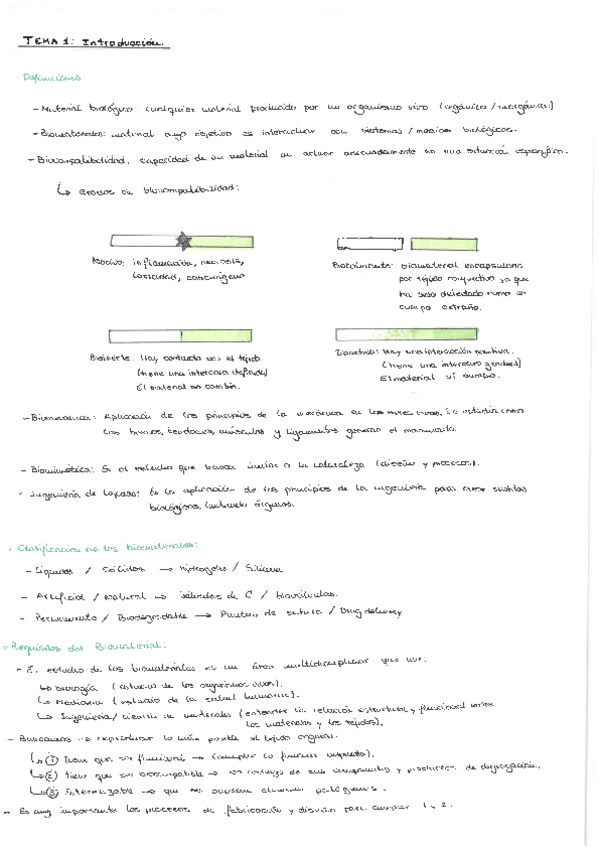 TEMA 1: Introducción.
· Definiciones
- Material biológico: cualquier material producido por un organismo vivo (orgánicos / inorgánicos)
- Biomateriales: material cuyo objetivo es interactuar con sistemas / medios biológicos.
- Biocompatibilidad: capacidad de un material de actuar adecuadamente en una situación específica.
↳ Grados de biocompatibilidad:
Nocivo: inflamación, necrosis,
toxicidad, cancerígeno
Biotolerante: biomaterial encapsulado
por tejido conjuntivo ya que
ha sido detectado como un
cuerpo extraño.
Bioinerte: Hay contacto con el tejido
(tiene una intercara definida)
El material no cambia.
Bioactivo: Hay una interacción positiva.
(tiene una intercara gradual)
El material sí cambia.
- Biomecánica: Aplicación de los principios de la mecánica a los seres vivos. Se estudia como
los huesos, tendones, músculos y ligamentos generan el movimiento.
- Biomimética: Es el método que busca imitar a la naturaleza (diseños y procesos).
- Ingeniería de tejidos: Es la aplicación de los principios de la ingeniería para crear sustitutos
biológicos, incluidos órganos.
· Clasificación de los biomateriales:
- Líquidos / Sólidos → hidrogeles / Silicona
- Artificial / Natural → de C / biovidrios.
- Permanente / Biodegradable → Puntos de sutura / Drug delivery
· Requisitos del Biomaterial:
- El estudio de los biomateriales es un área multidisciplinar que une:
↳ Biología (estudio de los organismos vivos).
↳ Medicina (estudio de la salud humana).
↳ Ingeniería / ciencia de materiales (entender la relación estructural y funcional entre
los materiales y los tejidos).
- Buscamos → reproducir lo más posible el tejido original.
↳ ① Tiene que ser funcional → (cumplir la función requerida).
↳ ② Tiene que ser biocompatible → productos de degradación.
↳ ③ Esterilizable → que no puedan patógenos.
- Es muy importante los procesos de fabricación y diseño para cumplir 1 y 2.